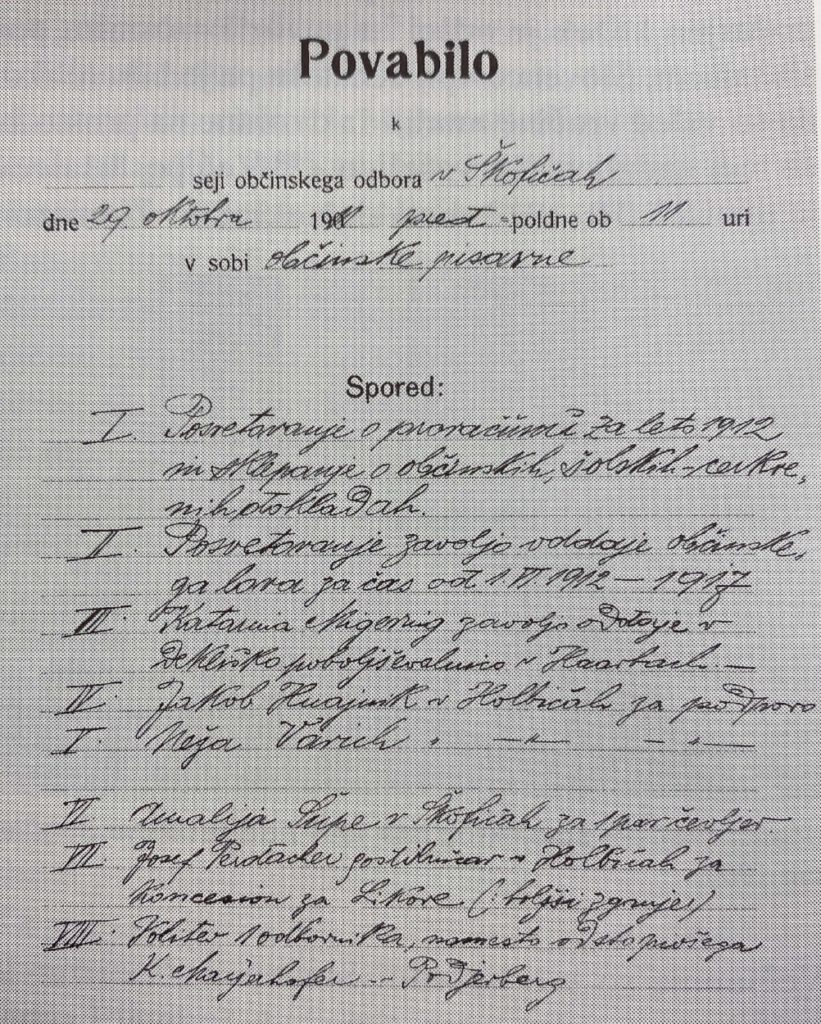 Povabilo
k
seji občinskega odbora v Škofičah
dne 29. oktobra 1911 pred-poldne ob 11 uri
v sobi občinske pisarne
Spored:
I. Posvetovanje o proračunu za leto 1912
in sklepanje o občinskih, šolskih-cerkve,
nih dokladah.
II. Posvetovanje zavoljo oddaje občinske,
ga lova za čas od 1. VI 1912 – 1917
III. Katarina zavoljo oddaje v
dekliško poboljševalnico v Haarbach. —
IV. Jakob v Holbičah za podporo
V. Neža Varich " —"— — " —
VI Amalija Supe v Škofičah za 1 par čevljev.
VII. Josef Perdacher gostilničar v Holbičah za
Koncesion za Likőre (: boljši žganje:)
VIII. Volitev 1 odbornika, namesto odstopivšega
K. Mayerhofer – Podjerberg